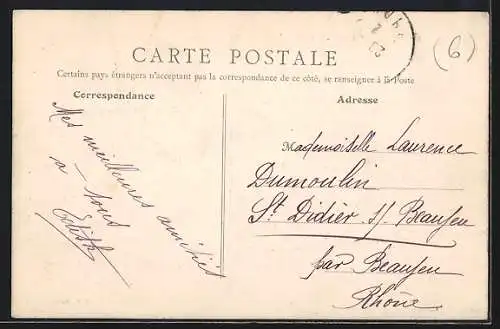 CARTE POSTALE
Certains pays étrangers n'acceptant pas la correspondance de ce côté, se renseigner à la Poste
Correspondance
Adresse
(6)
Mes meilleures amitiés
à tous
Edith
Mademoiselle Laurence
Dumoulin
St Didier s/ Beaujeu
par Beaujeu
Rhône